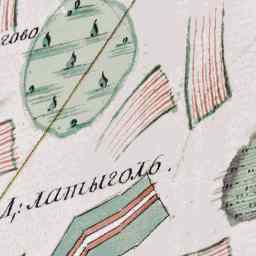 гово
Д: латыголь.